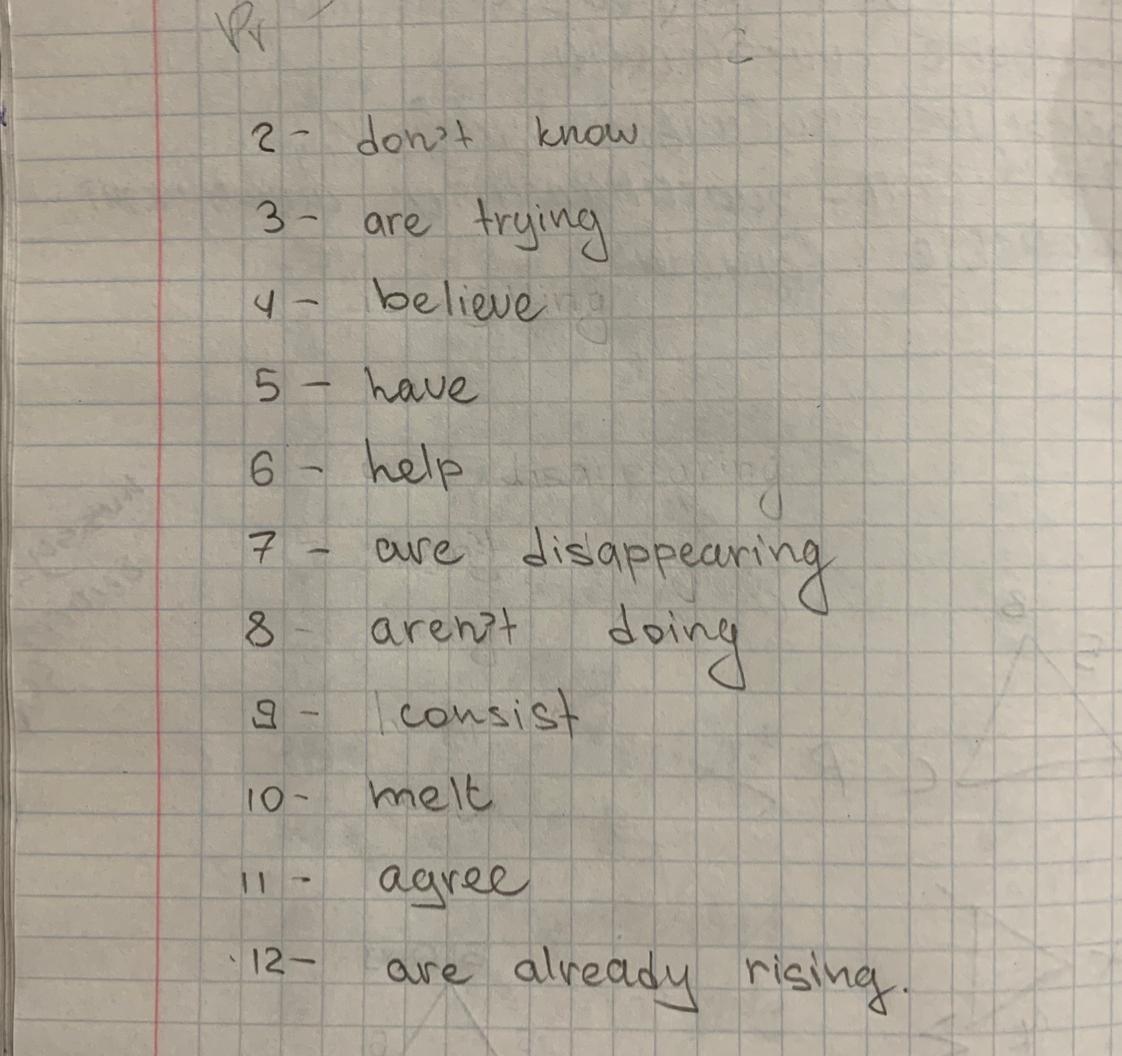 Pr
2 - don't know
3 - are trying
4 - believe
5 - have
6 - help
7 - are disappearing
8 - aren't doing
9 - consist
10 - melt
11 - agree
12 - are already rising.